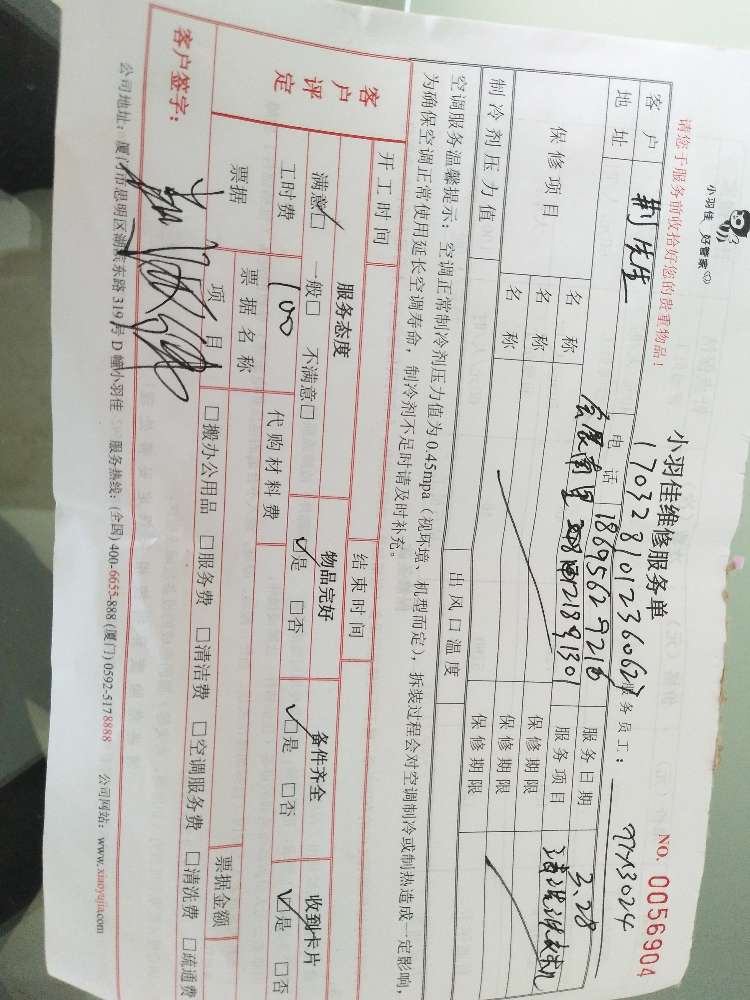 小羽佳 好管家
请您于服务前收拾好您的贵重物品！
小羽佳维修服务单
NO. 0056904
服务员工：
客户 电话 18695629218 服务日期 2.28
地址 服务项目
保修项目 名称 保修期限
名称 保修期限
名称 保修期限
制冷剂压力值 出风口温度
空调服务温馨提示：空调正常制冷剂压力值为0.45mpa（视环境、机型而定），拆装过程会对空调制冷或制热造成一定影响，
为确保空调正常使用延长空调寿命，制冷剂不足时请及时补充。
开工时间 结束时间
客户评定 服务态度 物品完好 备件齐全 收到卡片
满意□ 一般□ 不满意□ □是 □否 □是 □否 □是 □否
工时费 100 代购材料费
票据 票据名称 票据金额
项目 □搬办公用品 □服务费 □清洁费 □空调服务费 □清洗费 □疏通费
客户签字：
公司地址：厦门市思明区湖滨东路319号D幢小羽佳 服务热线：(全国)400-6655-888 (厦门)0592-5178888 公司网站：www.xiaoyujia.com